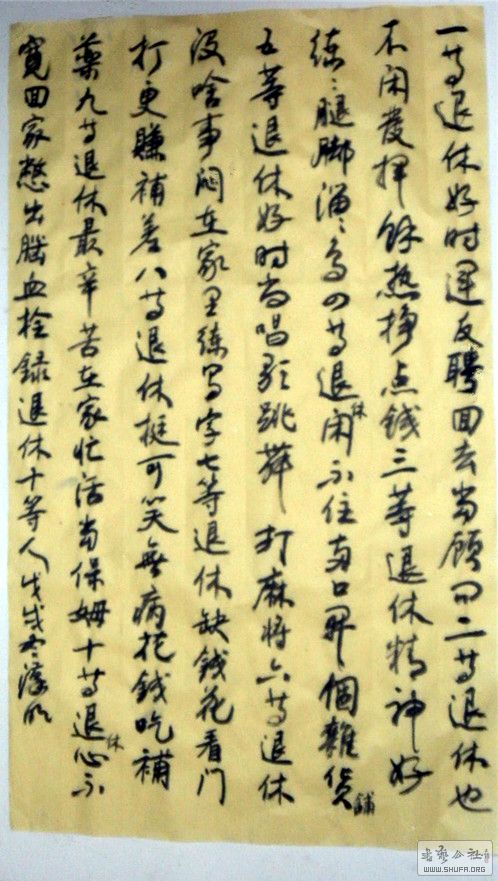 一等退休好时運反聘回去当顾问二等退休也
不闲发挥餘热挣点钱三等退休精神好
练练腿脚溜溜鸟四等退休闲不住路口开個雜货鋪
五等退休好时尚唱歌跳舞打麻将六等退休
没啥事闷在家里练写字七等退休缺錢花看门
打更赚補差八等退休挺可笑無病花钱吃補
藥九等退休最辛苦在家忙活当保姆十等退休心不
寬回家憋出腦血栓録退休十等人戊戌冬
WWW.SHUFA.ORG